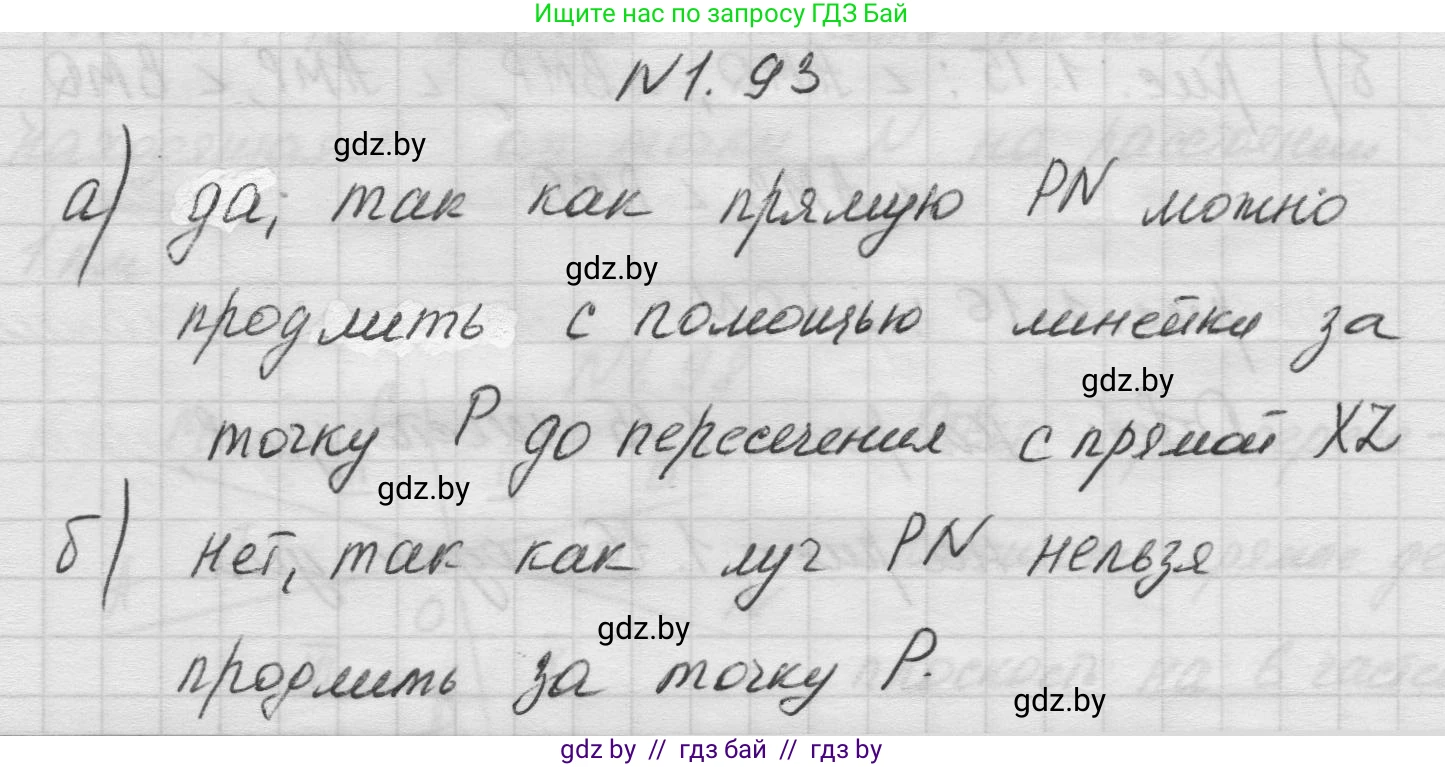 Ищите нас по запросу ГДЗ Бай
N1.93
gdz.by
а) да, так как прямую PN можно
gdz.by
продлить с помощью линейки за
gdz.by
точку P до пересечения с прямой XZ
gdz.by
б) нет, так как луч PN нельзя
gdz.by
продлить за точку P.
gdz.by
gdz by // гдз бай // гдз by